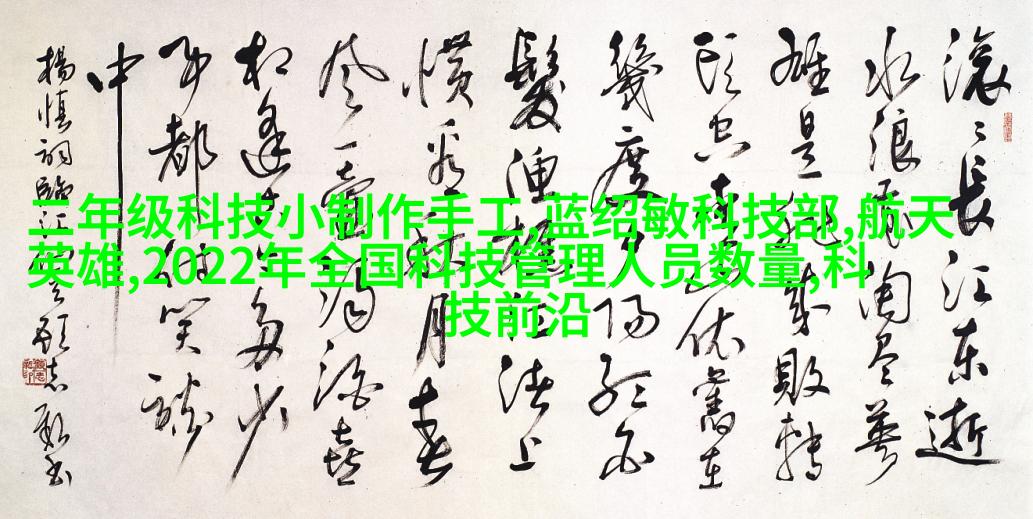 二年级科技小制作手工,蓝绍敏科技部,航天
英雄,2022年全国科技管理人员数量,科
技前沿
滚〻長江东逝
水浪花淘尽英
雄是非成敗轉
头空青山依舊在
幾度夕阳红白
髮渔樵江渚上
惯看秋月春
风一壶濁酒喜
相逢古今多少
事都付笑談
中
楊慎詞臨江仙